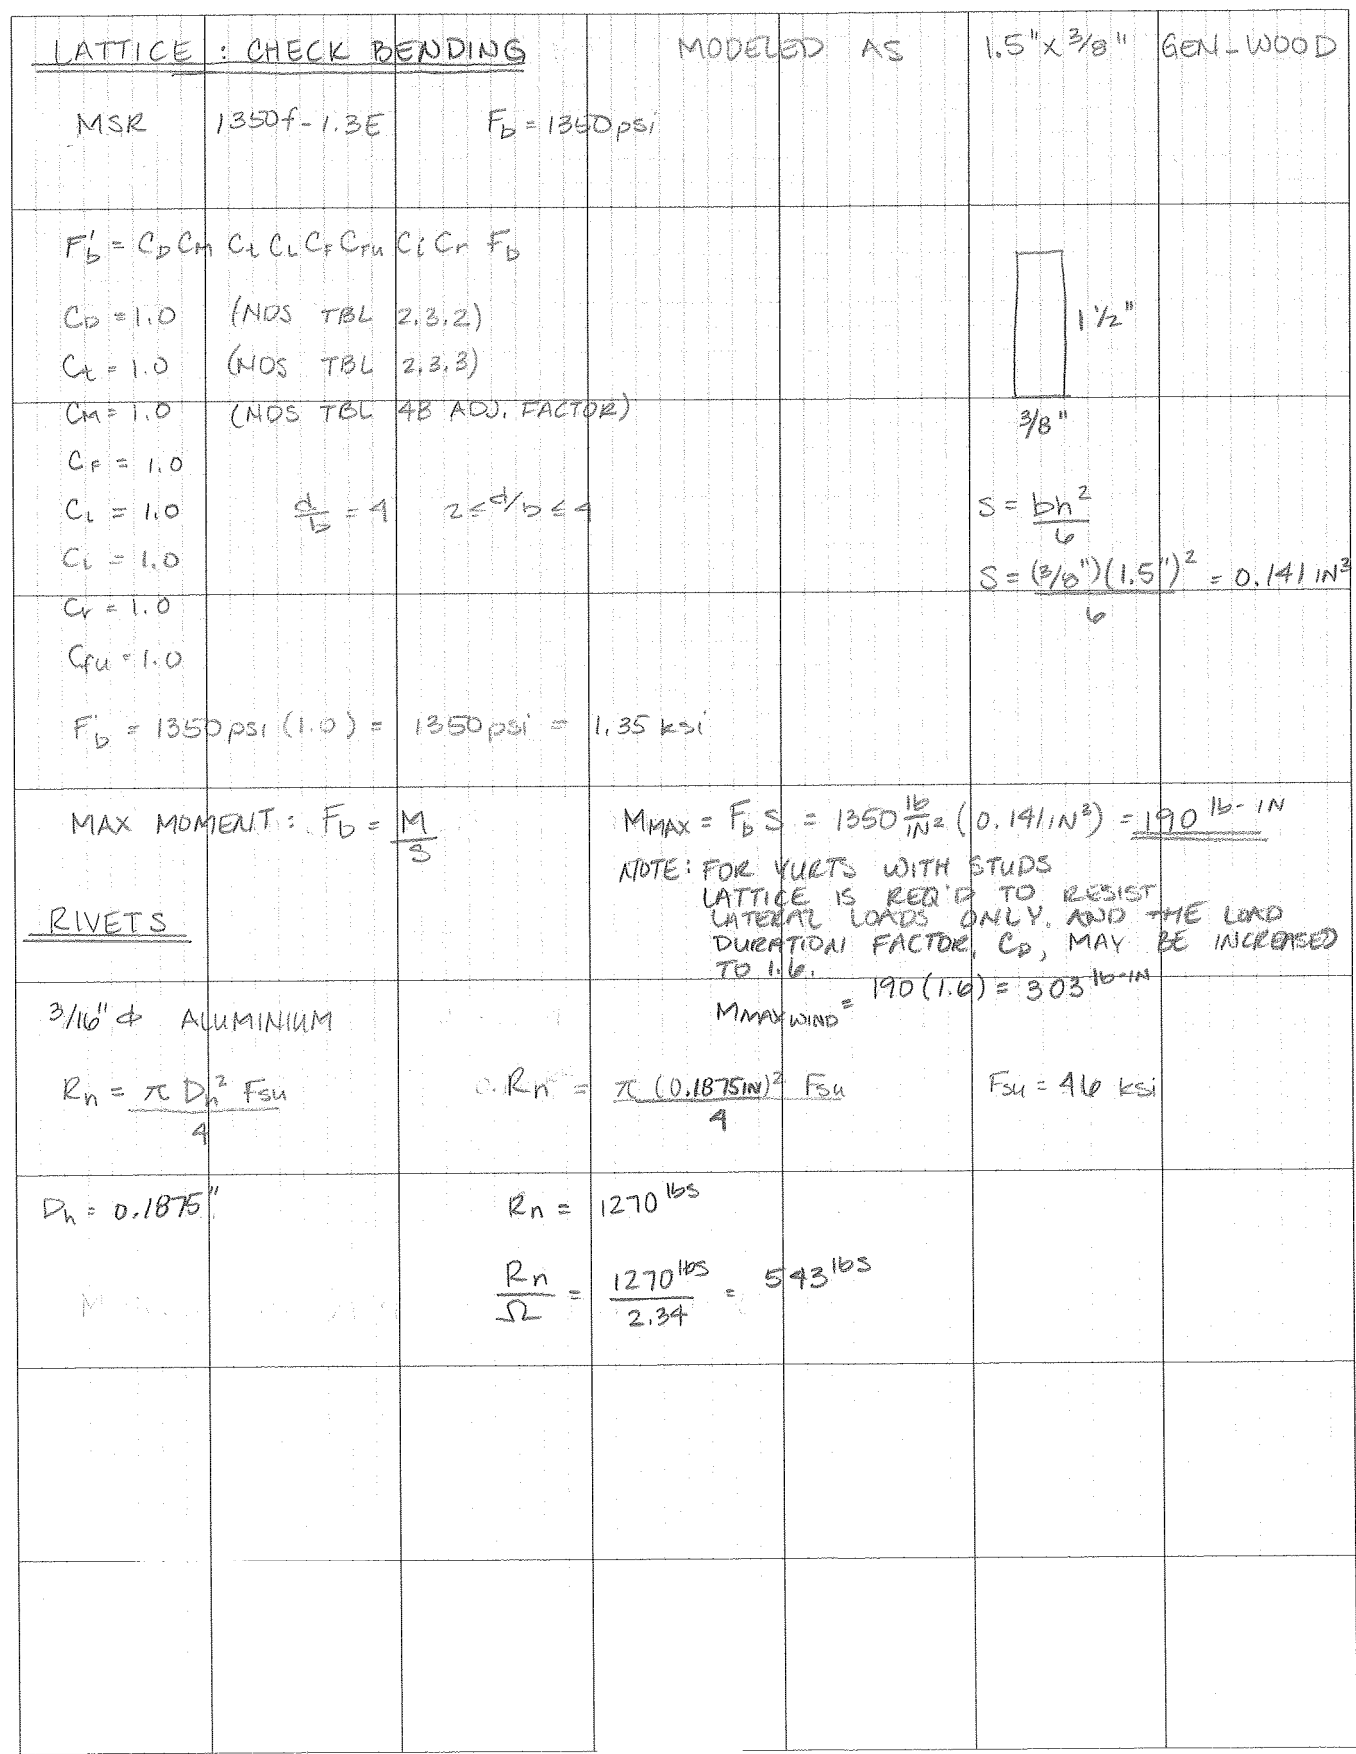 LATTICE : CHECK BENDING MODELED AS 1.5" x 3/8" GEN-WOOD
MSR 1350f-1.3E Fb = 1350 psi
F'b = CD CM Ct CL CF Cfu Ci Cr Fb
CD = 1.0 (NDS TBL 2.3.2)
1 1/2"
Ct = 1.0 (NDS TBL 2.3.3)
CM = 1.0 (NDS TBL 4B ADJ. FACTOR)
3/8"
CF = 1.0
CL = 1.0 d/b = 4 2 ≤ d/b ≤ 4 S = bh²/6
Ci = 1.0 S = (3/8")(1.5")²/6 = 0.141 IN³
Cr = 1.0
Cfu = 1.0
F'b = 1350 psi (1.0) = 1350 psi = 1.35 ksi
MAX MOMENT: Fb = M/S MMAX = Fb S = 1350 lb/IN² (0.141 IN³) = 190 lb-IN
NOTE: FOR YURTS WITH STUDS
LATTICE IS REQ'D TO RESIST
LATERAL LOADS ONLY, AND THE LOAD
DURATION FACTOR, CD, MAY BE INCREASED
TO 1.6.
MMAX WIND = 190 (1.6) = 303 lb-IN
RIVETS
3/16" ϕ ALUMINIUM
Rn = π Dh² Fsu/4 Rn = π (0.1875 IN)² Fsu/4 Fsu = 46 ksi
Dh = 0.1875" Rn = 1270 lbs
Rn/Ω = 1270 lbs/2.34 = 543 lbs